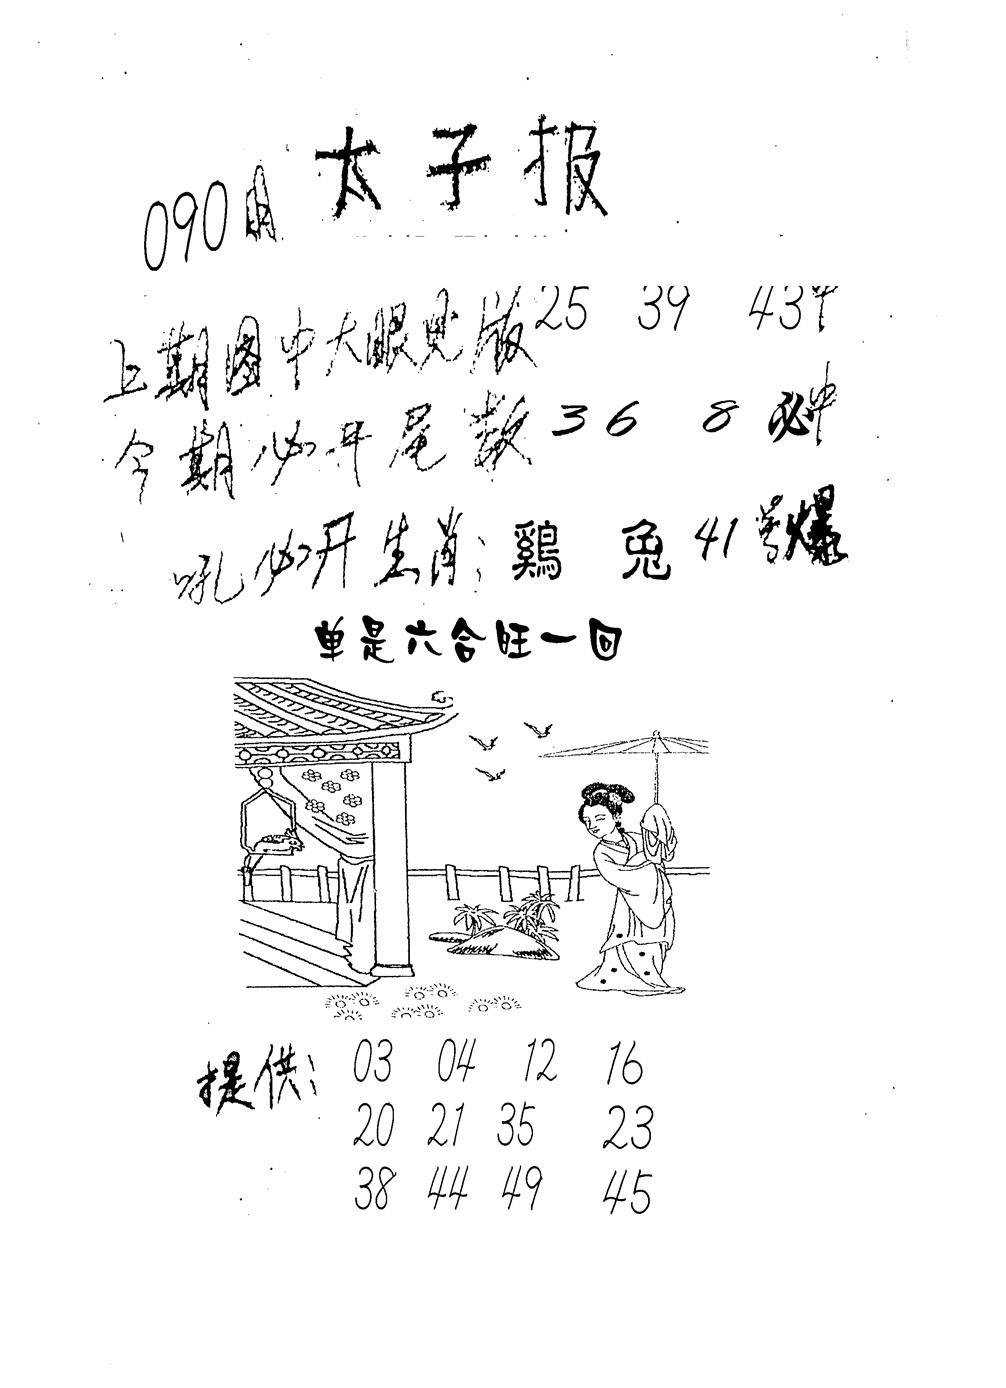 太子报
090期
上期图中大眼见版25 39 43中
今期必开尾数36 8必中
吼必开生肖：鷄 兔 41号爆
单是六合旺一回
提供：03 04 12 16
20 21 35 23
38 44 49 45